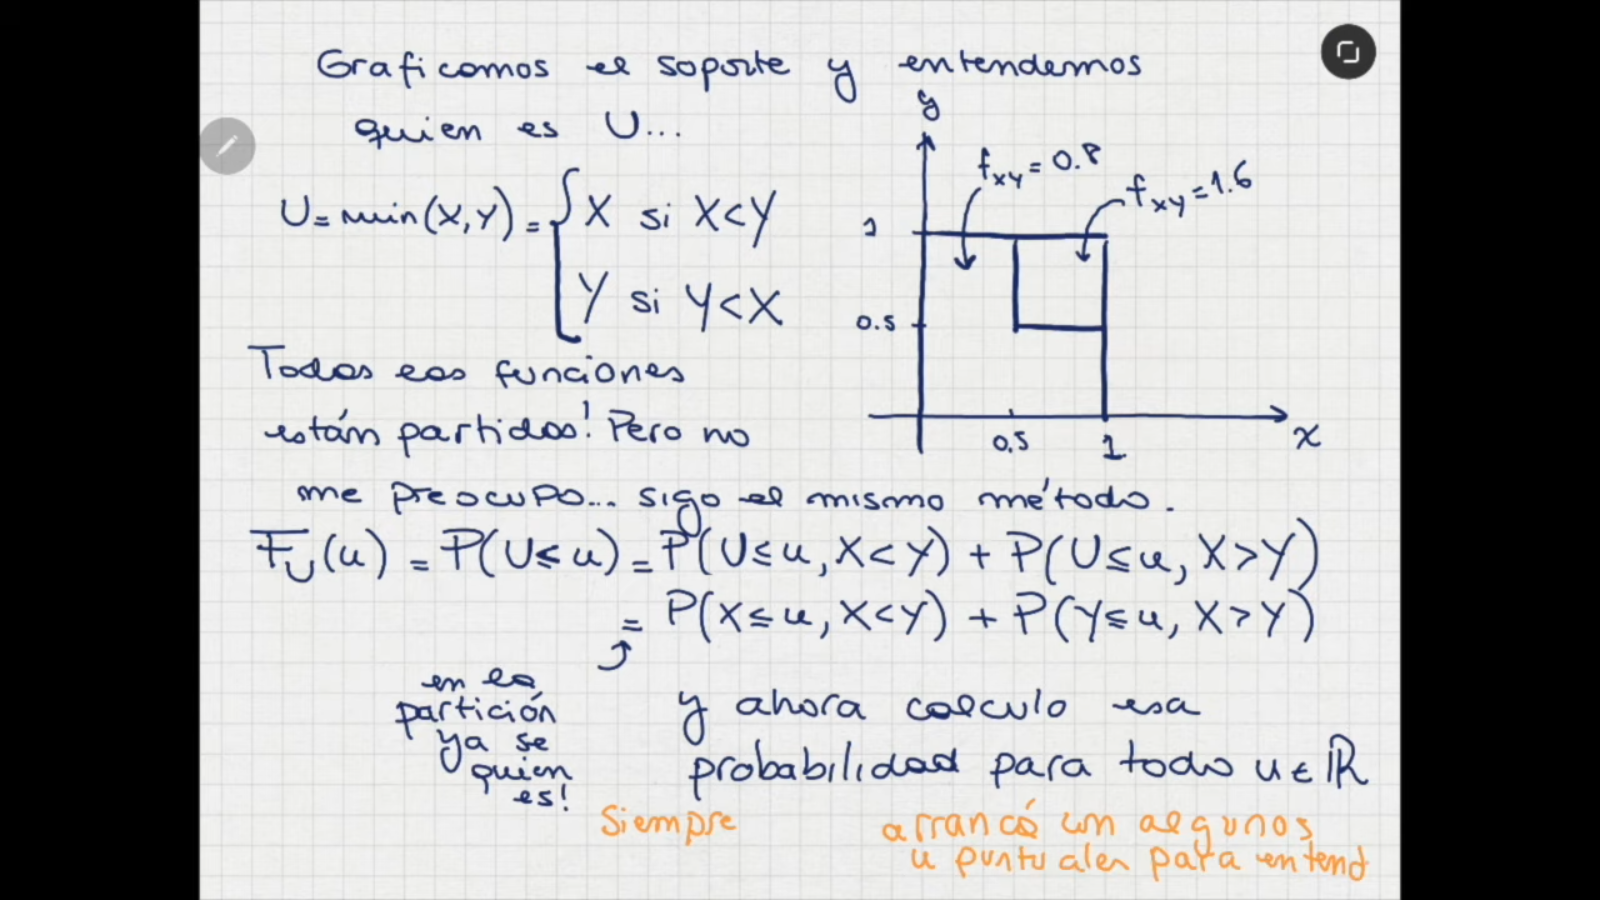 Graficamos el soporte y entendemos
quien es U...
U = min(X,Y) = { X si X<Y
Y si Y<X
y
f_XY = 0.8
f_XY = 1.6
1
0.5
0.5
1
x
Todas las funciones
están partidas! Pero no
me preocupo... sigo el mismo método.
F_U(u) = P(U≤u) = P(U≤u, X<Y) + P(U≤u, X>Y)
= P(X≤u, X<Y) + P(Y≤u, X>Y)
en la
partición
ya se
quien
es!
y ahora calculo esa
probabilidad para todo u∈ℝ
Siempre arrancá con algunos
u puntuales para entend